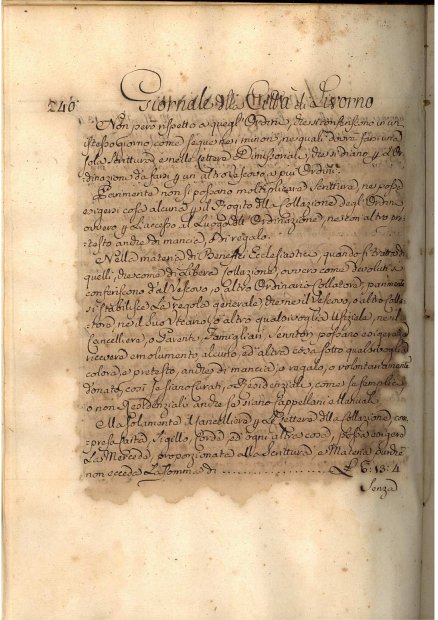 240 Giornale della Città di Livorno
Non però rispetto a quegl' Ordini, che si conferiscono in un'
istesso giorno come sequentesi minori, ne quali dovrà farsi una
sola scrittura, e nelle lettere Dimissionali, che si diano p l'Or
dinazioni da farsi p un altro Vescovo a più Ordini.
Parimente non si possano moltiplicare Scritture, ne possa
esigersi cosa alcuna p il Rogito della Collazione degli Ordini,
ovvero p l'accesso al Luogo dell' Ordinazione, ne con altro pre
testo anche di mancia, o Di regalo.
Nella materia di Benefizi Ecclesiastici, quando si tratta di
quelli, che come di Libera Collazione, ovvero come devoluti si
conferiscono dal Vescovo, o altro Ordinario Collatore, parimente
si stabilisce La regola generale, che ne il Vescovo, o altro Colla
tore, ne il suo Vicario, o altro qualsivoglia Ufiziale, ne il
Cancelliere, o Parenti, Famigliari, Servitori possano esigere, o
ricevere emolumento alcuno, ed altra cosa sotto qualsivoglia
colore, e pretesto, anche di mancia, o regalo, o volontariamente
donato, così se siano Curati, o Residenziali, come se semplici,
o non Residenziali, anche se siano Cappellanie Manuali.
Ma solamente il Cancelliere p la Lettera della Collazione com
presa carta, Sigillo, corda, ed ogni altra cosa, possa esigere
La Mercede, proporzionata alla Scrittura, e Materia, purchè
non ecceda La Somma di .................. £ 6: 13: 4
Senza